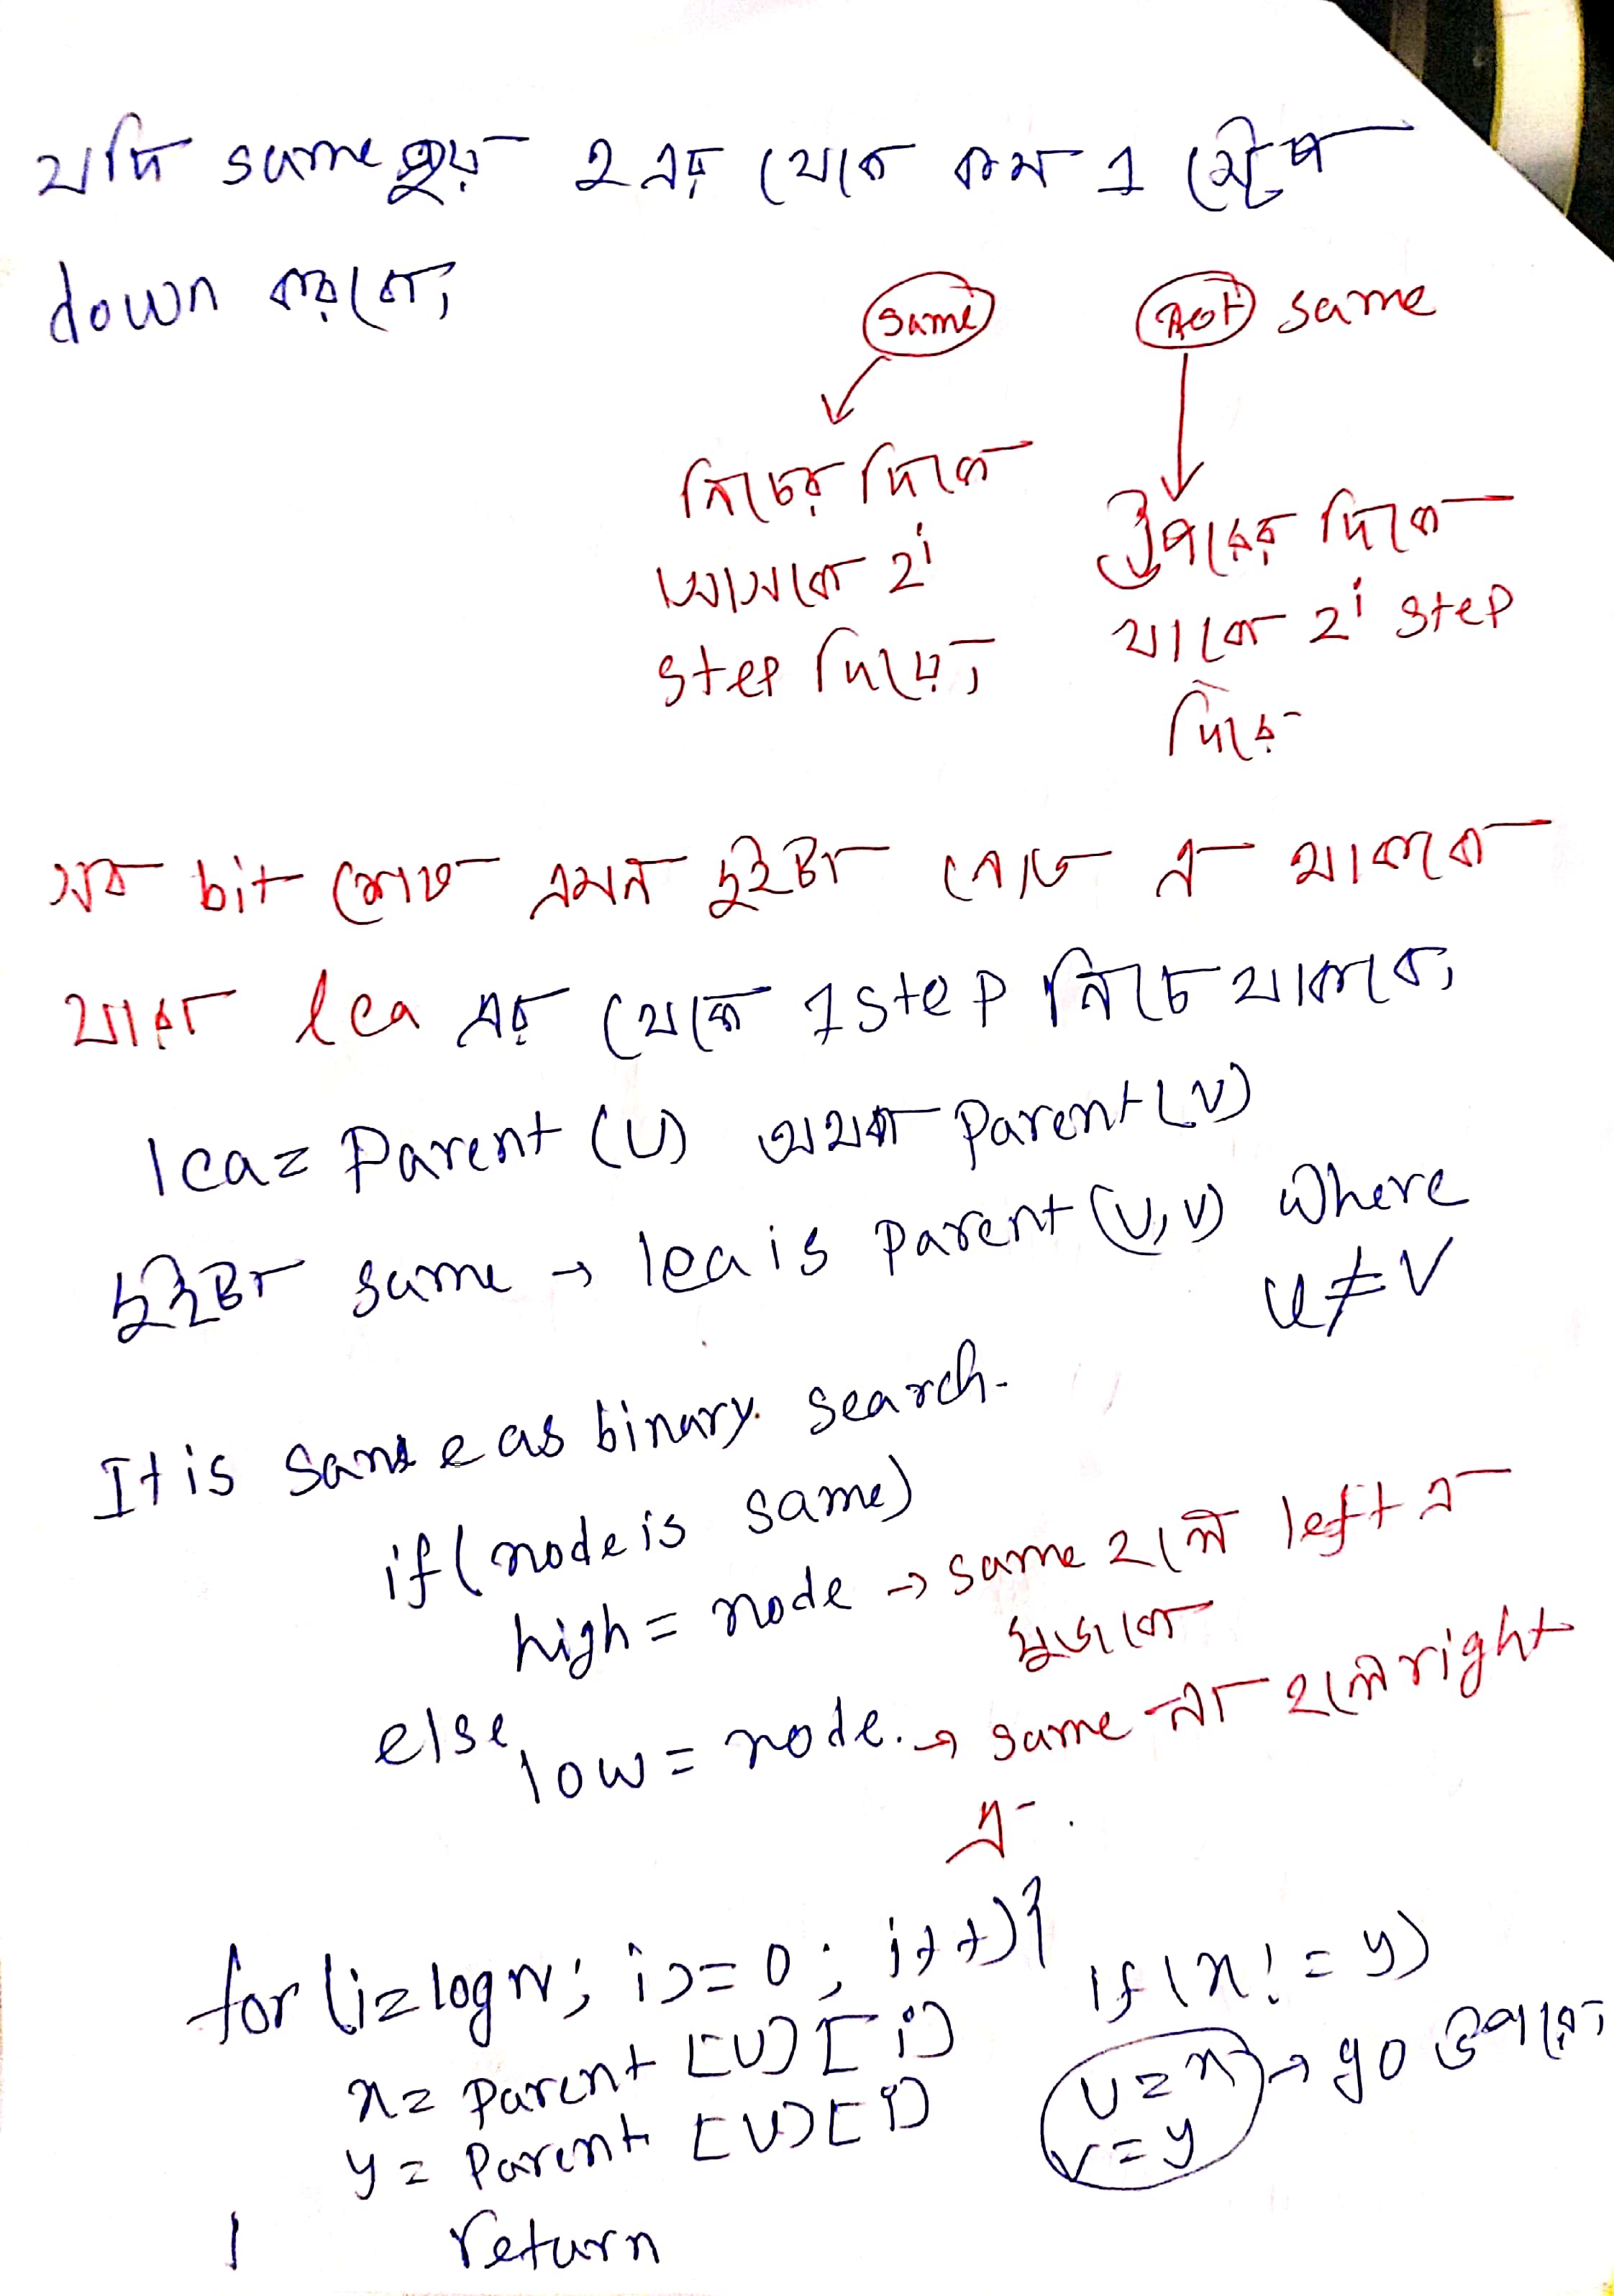 যদি same হয় 2 এর থেকে কম 1 স্টেপ
down করবে,
same
নিচের দিকে
আসবে 2^i
step দিয়ে,
Not same
উপরের দিকে
যাবে 2^i step
দিয়ে
সব bit শেষে এমন দুইটা নোড এ থাকবে
যারা lca এর থেকে 1 step নিচে থাকবে,
lca = Parent (U) অথবা parent (V)
দুইটা same → lca is parent (U, V) where
U ≠ V
It is same as binary search.
if (node is same)
high = node → same হলে left এ
খুজবে
else
low = node. → same না হলে right
এ.
for (i = log n; i >= 0; i++) {
x = Parent [U] [i]
y = Parent [V] [i]
return
if (x != y)
U = x → go উপরে,
V = y